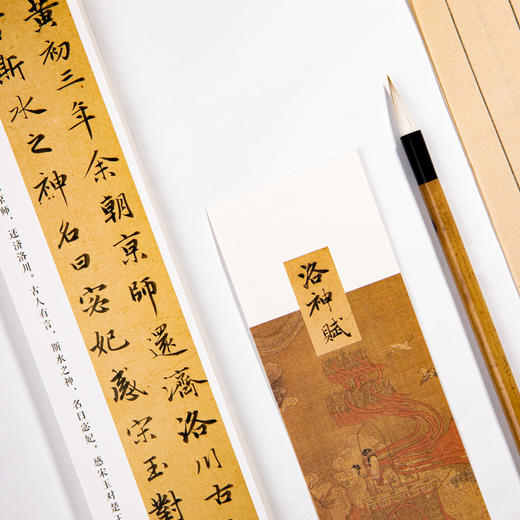 黄初三年余朝京師還濟洛川古
斯水之神名曰宓妃感宋玉對
京师，还济洛川。古人有言，斯水之神，名曰宓妃。感宋玉对楚王
洛神賦